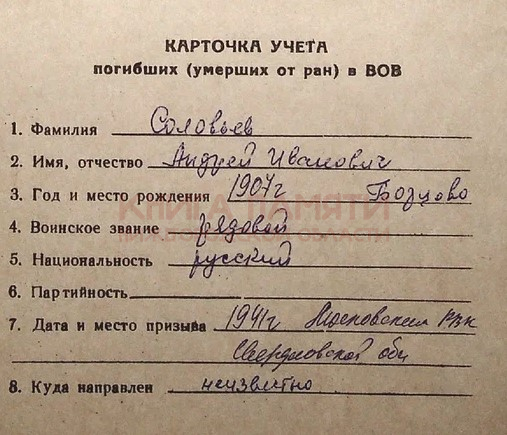 КАРТОЧКА УЧЕТА
погибших (умерших от ран) в ВОВ
1. Фамилия Соловьев
2. Имя, отчество Андрей Иванович
3. Год и место рождения 1907г
КНИГА ПАМЯТИ
4. Воинское звание рядовой
5. Национальность русский
6. Партийность
7. Дата и место призыва 1941г РВК
Свердловской обл
8. Куда направлен неизвестно